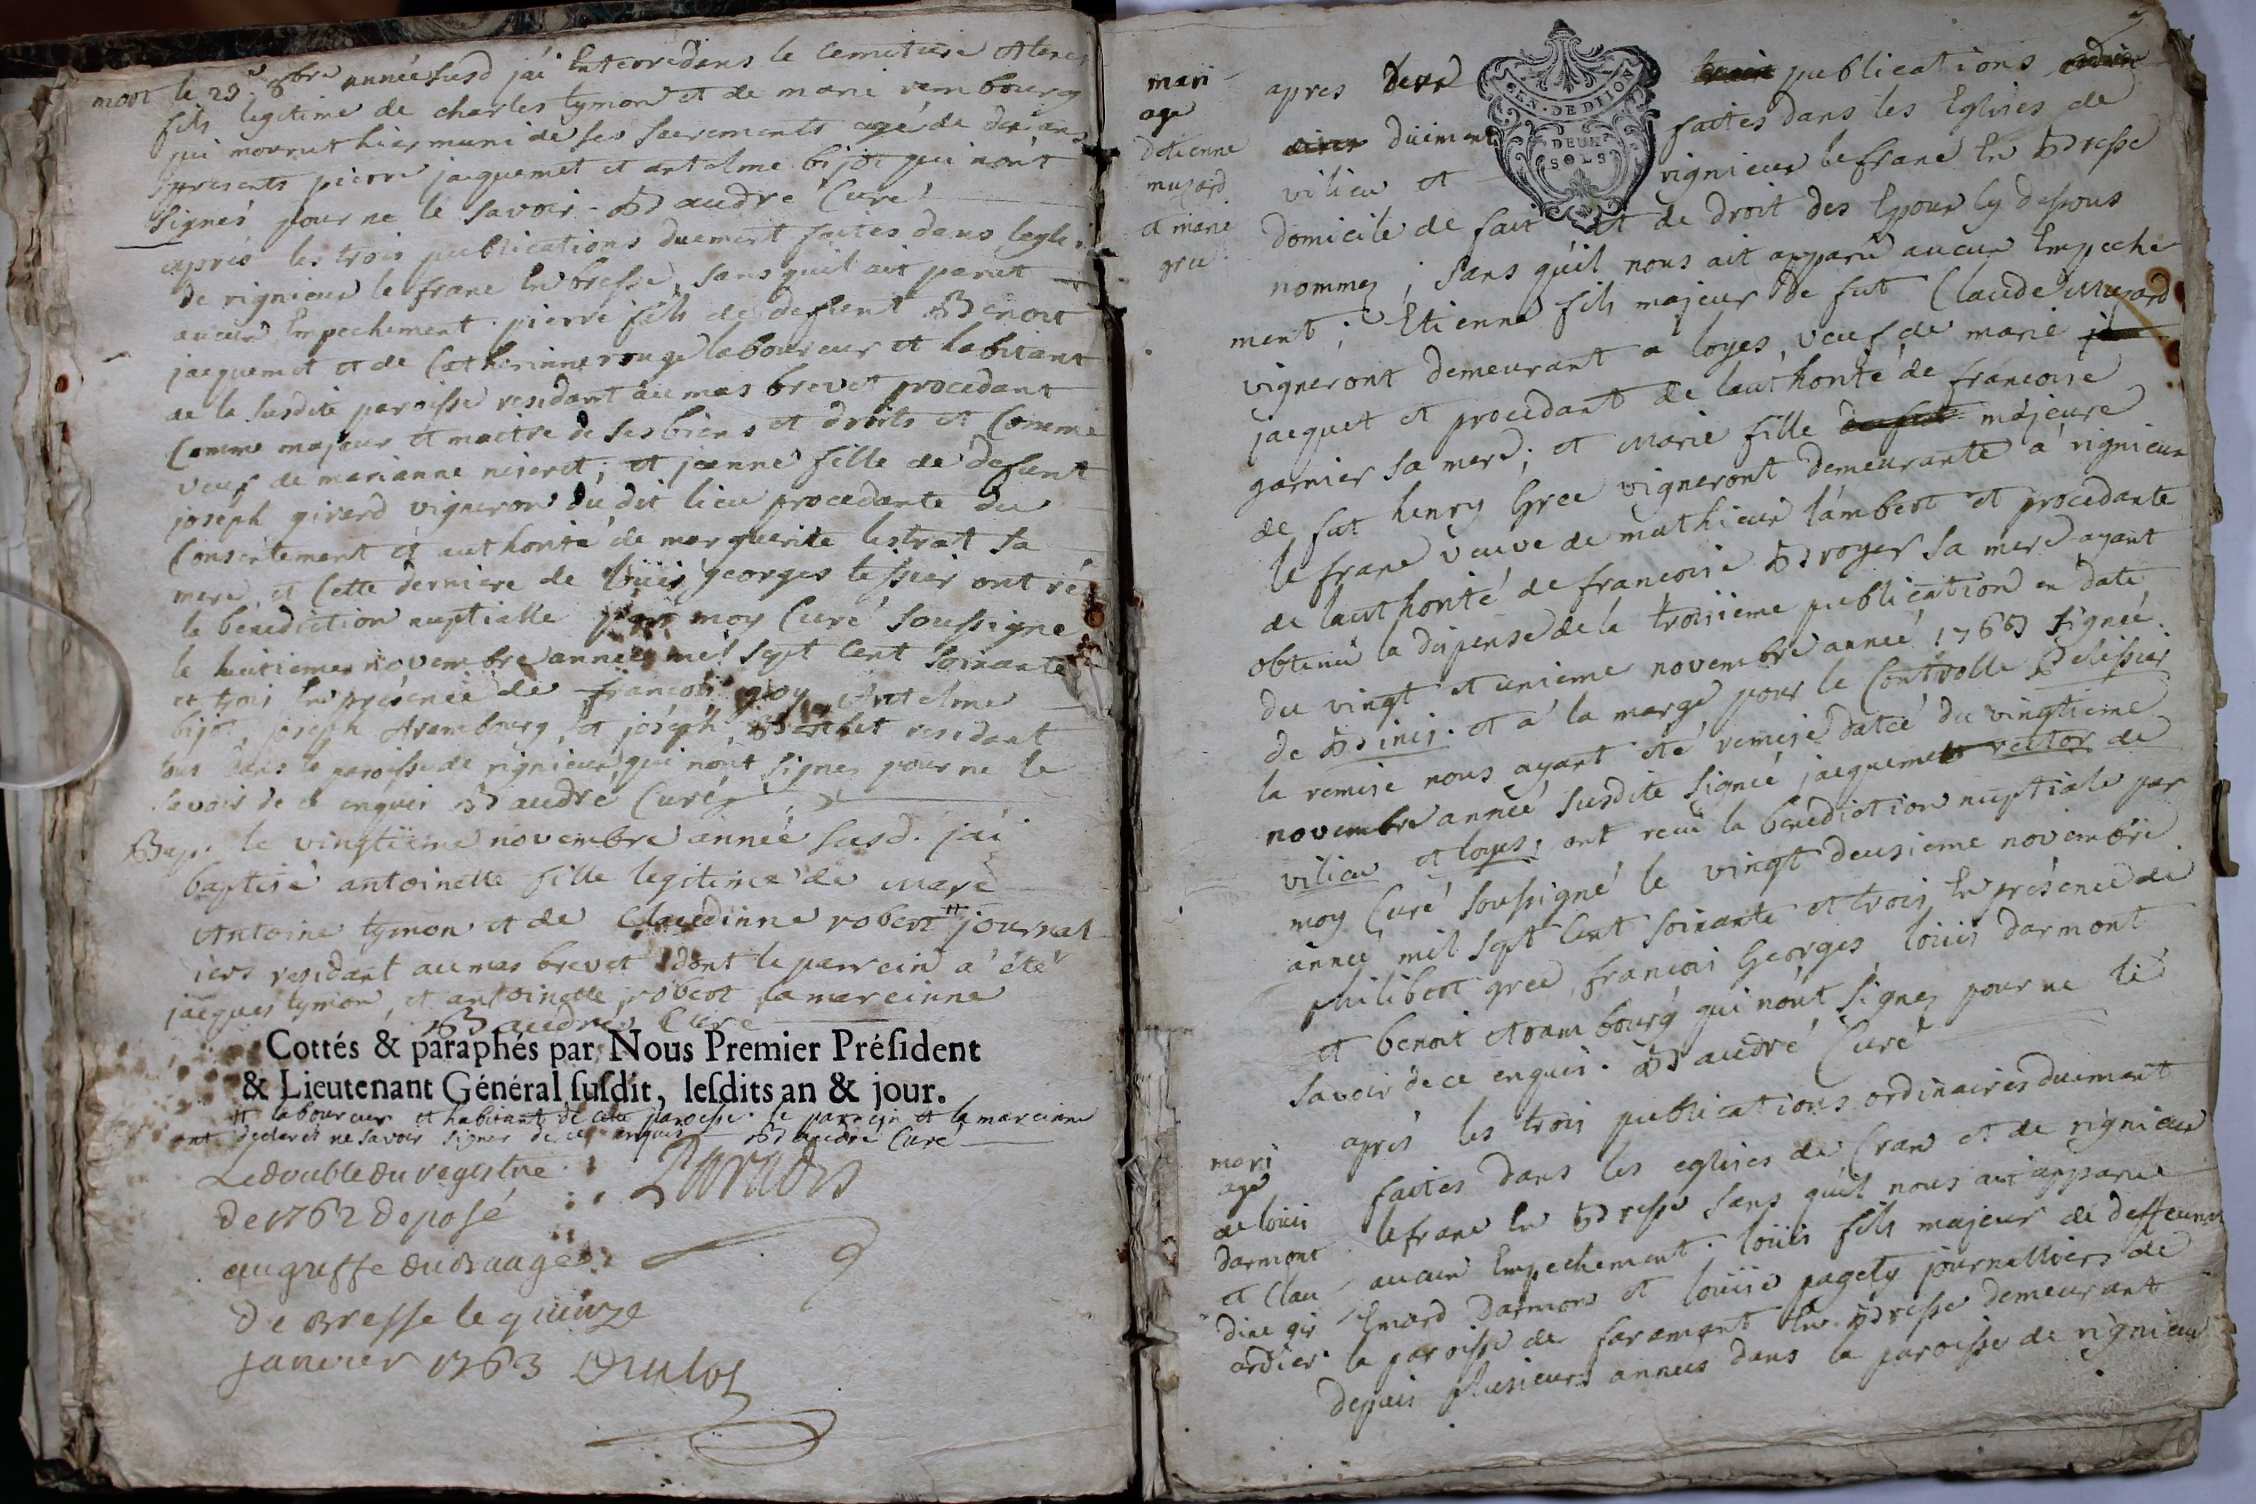 mort le 29e 8bre année susd jai Enterré dans le Cemetiere
fils legitime de charles tymon et de marie rambourg
qui mourut hier muni de ses sacrements agé de dix ans
presents pierre jacquemet et antelme bijot qui n'ont
signés pour ne le savoir - Baudré Curé
après les trois publications duement faites dans legli
de rignieux le franc En bresse, sans quil ait parut
aucun Empechement. pierre fils de deffent Benoit
jacquemet et de Catherinne rouge laboureur et habitant
de la susdite paroisse residant au mas brevet procedant
Comme majeur et maitre de ses biens et droits et Comme
veuf de marianne niseret; et jeanne fille de defunt
joseph girard vigneron du dit lieu procedante du
Consentement et authorité de marguerite lestrat sa
mere, et Cette derniere de loüis georges tessier ont ré
la benediction nuptialle par moy Curé soussigne
le huitieme novembre année mil sept Cent soixante
et trois En présence de françois goy, Antelme
bijot, joseph Arambourg, et joséph Berthet residant
tous dans la paroisse de rignieux, qui nont signez pour ne le
savoir de ce enquis Baudré Curé
Bap. le vingtiéme novembre année susd. jai
baptisé antoinette fille legitime de Marc
Antoine tymon et de Claudinne robert # journal
iers residant au mas brevet dont le parrein a été
jacques tymon, et antoinette robert la mareinne
Baudré Curé
Cottés & paraphés par Nous Premier Préſident
& Lieutenant Général ſuſdit, leſdits an & jour.
# laboureur et habitant de cette paroisse. le parrein et la mareinne
ont declarés ne savoir signer de ce enquis Baudré Curé
Le double du registre
de 1762 deposé
au greffe du Baage
de Bresse le quinze
janvier 1763
mari
age
detienne
muzard
et marie
gru
apres deux publications
duement faites dans les Eglises de
vilieu et rignieux le franc En Bresse
domicile de fait et de droit des Epoux Cy dessous
nommez; sans quil nous ait apparû aucun Empeche
ment; Etienne fils majeur de fut Claude Muzard
vigneront demeurant a loyes, veuf de marie
jacquet et procedant de lauthorité de francoise
garnier sa mere; et Marie fille majeure
de fut henry Gree vigneront demeurante à rignieux
le franc veuve de mathieu lambert et procedante
de lauthorité de francoise Broyer sa mere ayant
obtenu la dispense de la troisieme publication en date
du vingt et unieme novembre année 1763 signée.
de Dinis. et a la marge pour le Controlle Pelissier
la remise nous ayant été remise datée du vingtieme
novembre année susdite signée jacquemet rector de
vilieu et loyes; ont recu la benediction nuptiale par
moy Curé soussigné le vingt deusieme novembre
année mil sept Cent soixante et trois En présence de
philibert gree, françois Georges, loüis darmont
et benoit Arambourg qui nont signez pour ne le
savoir de ce enquis. Baudré Curé
mari
age
de loüis
darmont
et Clau
dine gir
ardier
après les trois publications ordinaires duement
faites dans les eglises de Cran et de rignieux
lefranc En Bresse sans quil nous ait apparu
aucun Empechement. loüis fils majeur de deffeunt
Emard Darmont et loüise pagety journalliers de
la paroisse de faramant En Bresse demeurant
depuis plusieurs années dans la paroisse de rignieux
GEN. DE DIJON
DEUX
SOLS